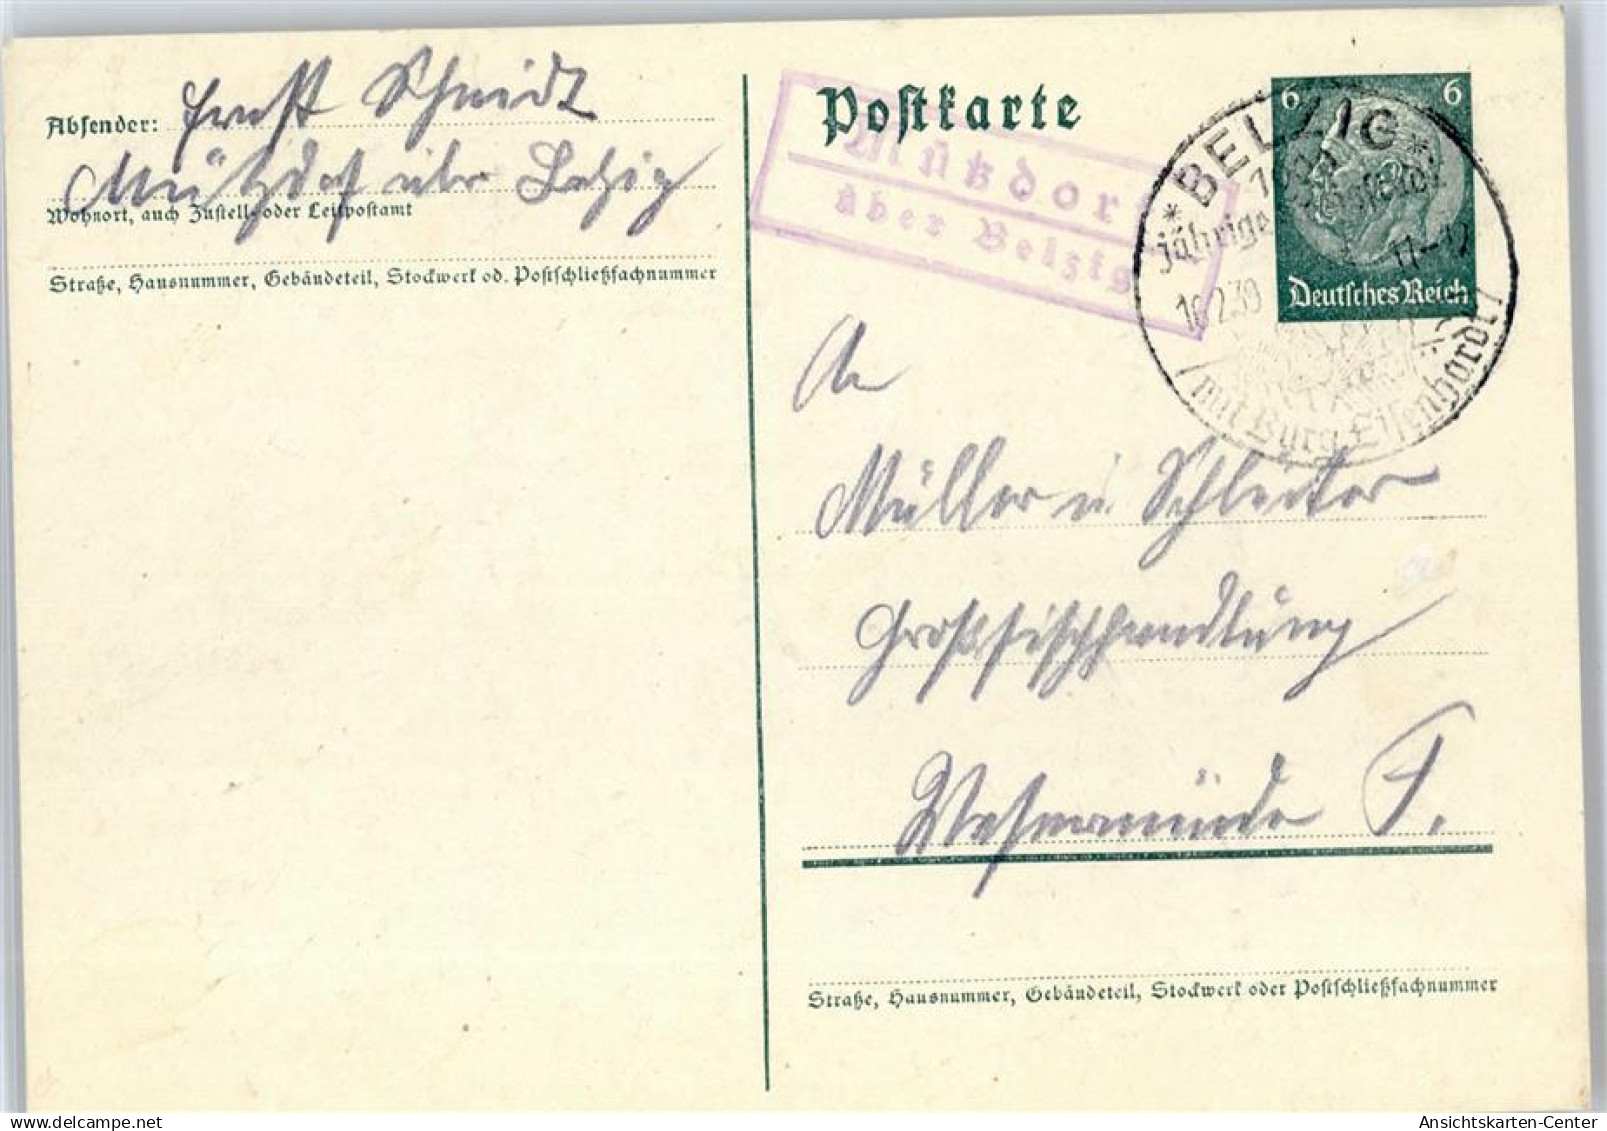 Absender: Ernst Schmidt
Mützdorf über Belzig
Wohnort, auch Zustell- oder Leitpostamt
Straße, Hausnummer, Gebäudeteil, Stockwerk od. Postschließfachnummer
Postkarte
Mützdorf
über Belzig
* BELZIG *
jährige
11-12
2.39
mit Burg Eisenhardt
6 6
Deutsches Reich
An
Müller u. Schleiter
Großfischhandlung
Wesermünde F.
Straße, Hausnummer, Gebäudeteil, Stockwerk oder Postschließfachnummer
Ansichtskarten-Center